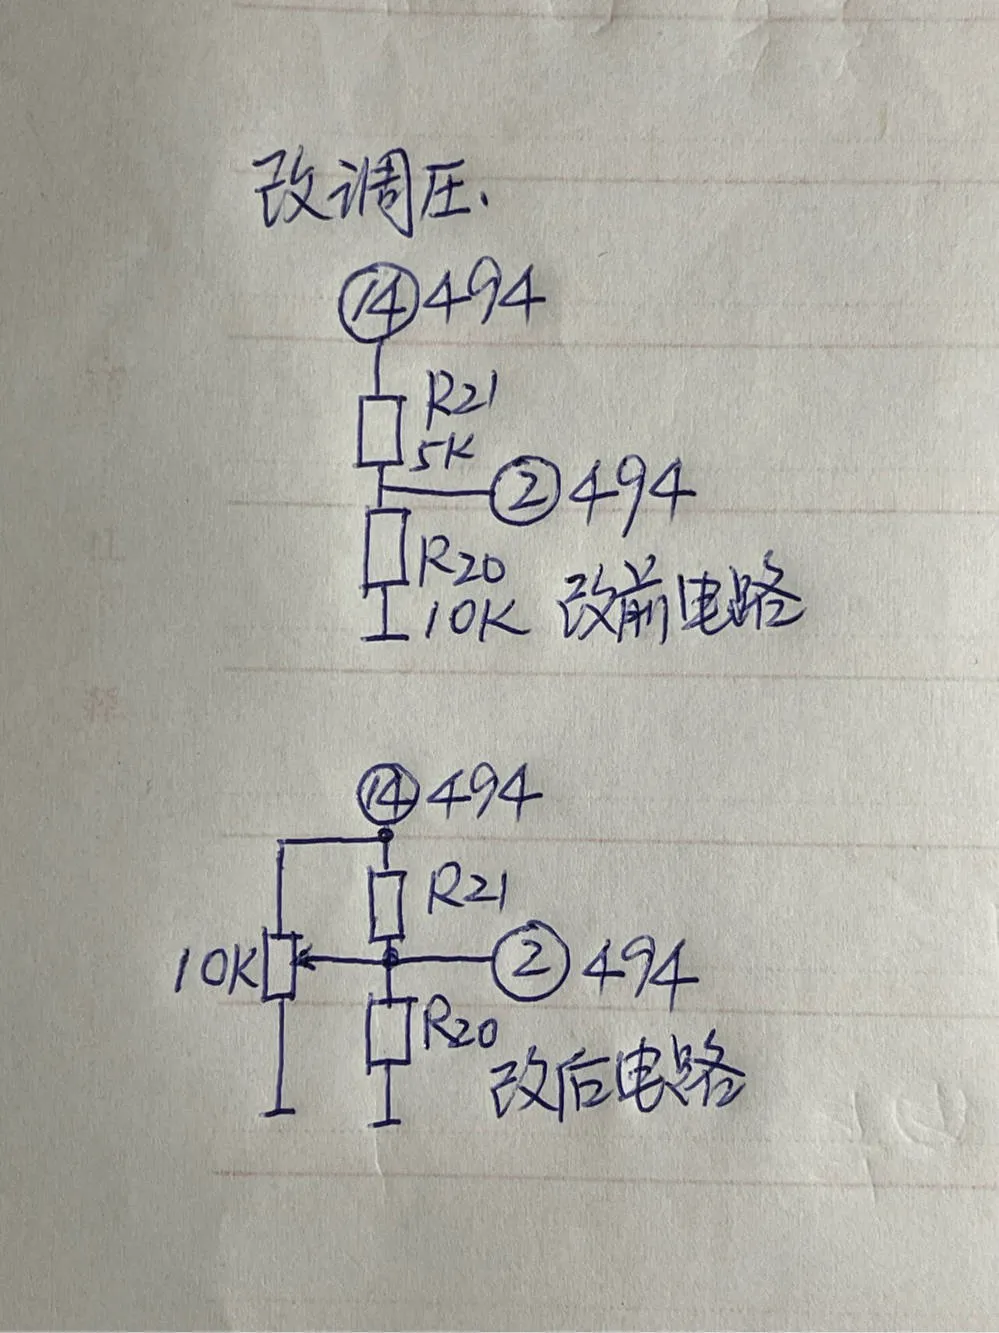 改调压.
14 494
R21
5K
2 494
R20
10K 改前电路
14 494
R21
10K 2 494
R20
改后电路